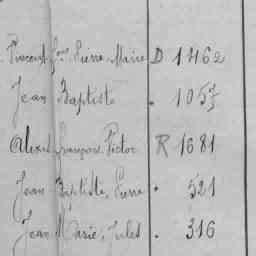 Vincent fois Pierre Marie D 1462
Jean Baptiste . 1057
Alexis françois Victor R 1681
Jean Baptiste, Pierre . 521
Jean Marie, Jules . 316